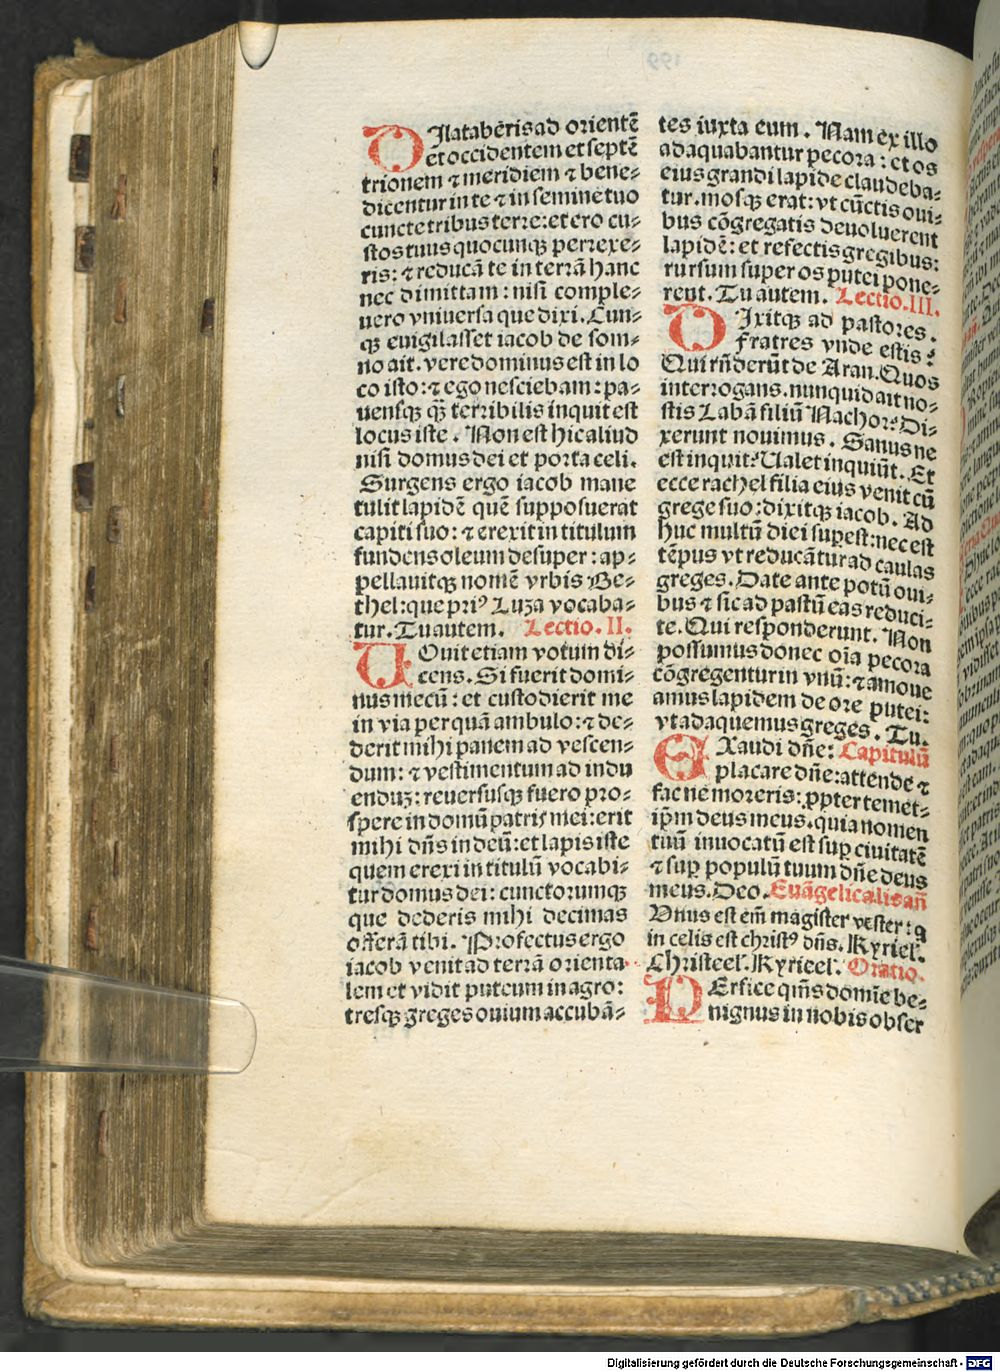 DIlataberis ad orientē
et occidentem et septē
trionem ⁊ meridiem ⁊ bene⸗
dicentur in te ⁊ in semine tuo
cuncte tribus terre: et ero cu⸗
stos tuus quocunqꝫ perrexe⸗
ris: ⁊ reducā te in terrā hanc
nec dimittam: nisi comple⸗
uero vniuersa que dixi. Cun⸗
qꝫ euigilasset iacob de som⸗
no ait. vere dominus est in lo
co isto: ⁊ ego nesciebam: pa⸗
uensqꝫ qꝫ̄ terribilis inquit est
locus iste. Non est hic aliud
nisi domus dei et porta celi.
Surgens ergo iacob mane
tulit lapidē quē supposuerat
capiti suo: ⁊ erexit in titulum
fundens oleum desuper: ap⸗
pellauitqꝫ nomē vrbis Be⸗
thel: que priꝰ Luza vocaba⸗
tur. Tu autem. Lectio. II.
UOuit etiam votum di⸗
cens. Si fuerit domi⸗
nus mecū: et custodierit me
in via per quā ambulo: ⁊ de⸗
derit mihi panem ad vescen⸗
dum: ⁊ vestimentum ad indu
enduꝫ: reuersusqꝫ fuero pro⸗
spere in domū patris mei: erit
mihi dn̄s in deū: et lapis iste
quem erexi in titulū vocabi⸗
tur domus dei: cunctorumqꝫ
que dederis mihi decimas
offerā tibi. Profectus ergo
iacob venit ad terrā orienta
lem et vidit puteum in agro:
tresqꝫ greges ouium accubā⸗
tes iuxta eum. Nam ex illo
adaquabantur pecora: et os
eius grandi lapide claudeba⸗
tur. mosqꝫ erat: vt cūctis oui⸗
bus cōgregatis deuoluerent
lapidē: et refectis gregibus:
rursum super os putei pone⸗
rent. Tu autem. Lectio. III.
DIxitqꝫ ad pastores.
fratres vnde estis?
Qui rn̄derūt de Aran. Quos
interrogans. nunquid ait no⸗
stis Labā filiū Nachor? Di⸗
xerunt nouimus. Sanus ne
est inquit? Ualet inquiūt. Et
ecce rachel filia eius venit cū
grege suo: dixitqꝫ iacob. Ad
huc multū diei suꝑest: nec est
tēpus vt reducātur ad caulas
greges. Date ante potū oui⸗
bus ⁊ sic ad pastū eas reduci⸗
te. Qui responderunt. Non
possumus donec oīa pecora
cōgregentur in vnū: ⁊ amoue
amus lapidem de ore putei:
vt adaquemus greges. Tu.
EXaudi dn̄e: Capitulū
placare dn̄e: attende ⁊
fac ne moreris: ꝓpter temet⸗
ip̄m deus meus. quia nomen
tuū inuocatū est suꝑ ciuitatē
⁊ suꝑ populū tuum dn̄e deus
meus. Deo. Euāgelicalis an̄
Unus est em̄ magister vester: q
in celis est christꝰ dn̄s. Kyriel̓.
Christeel̓. Kyrieel̓. Oratio.
PErfice qm̄s domīe be⸗
nignus in nobis obser
Digitalisierung gefördert durch die Deutsche Forschungsgemeinschaft - DFG